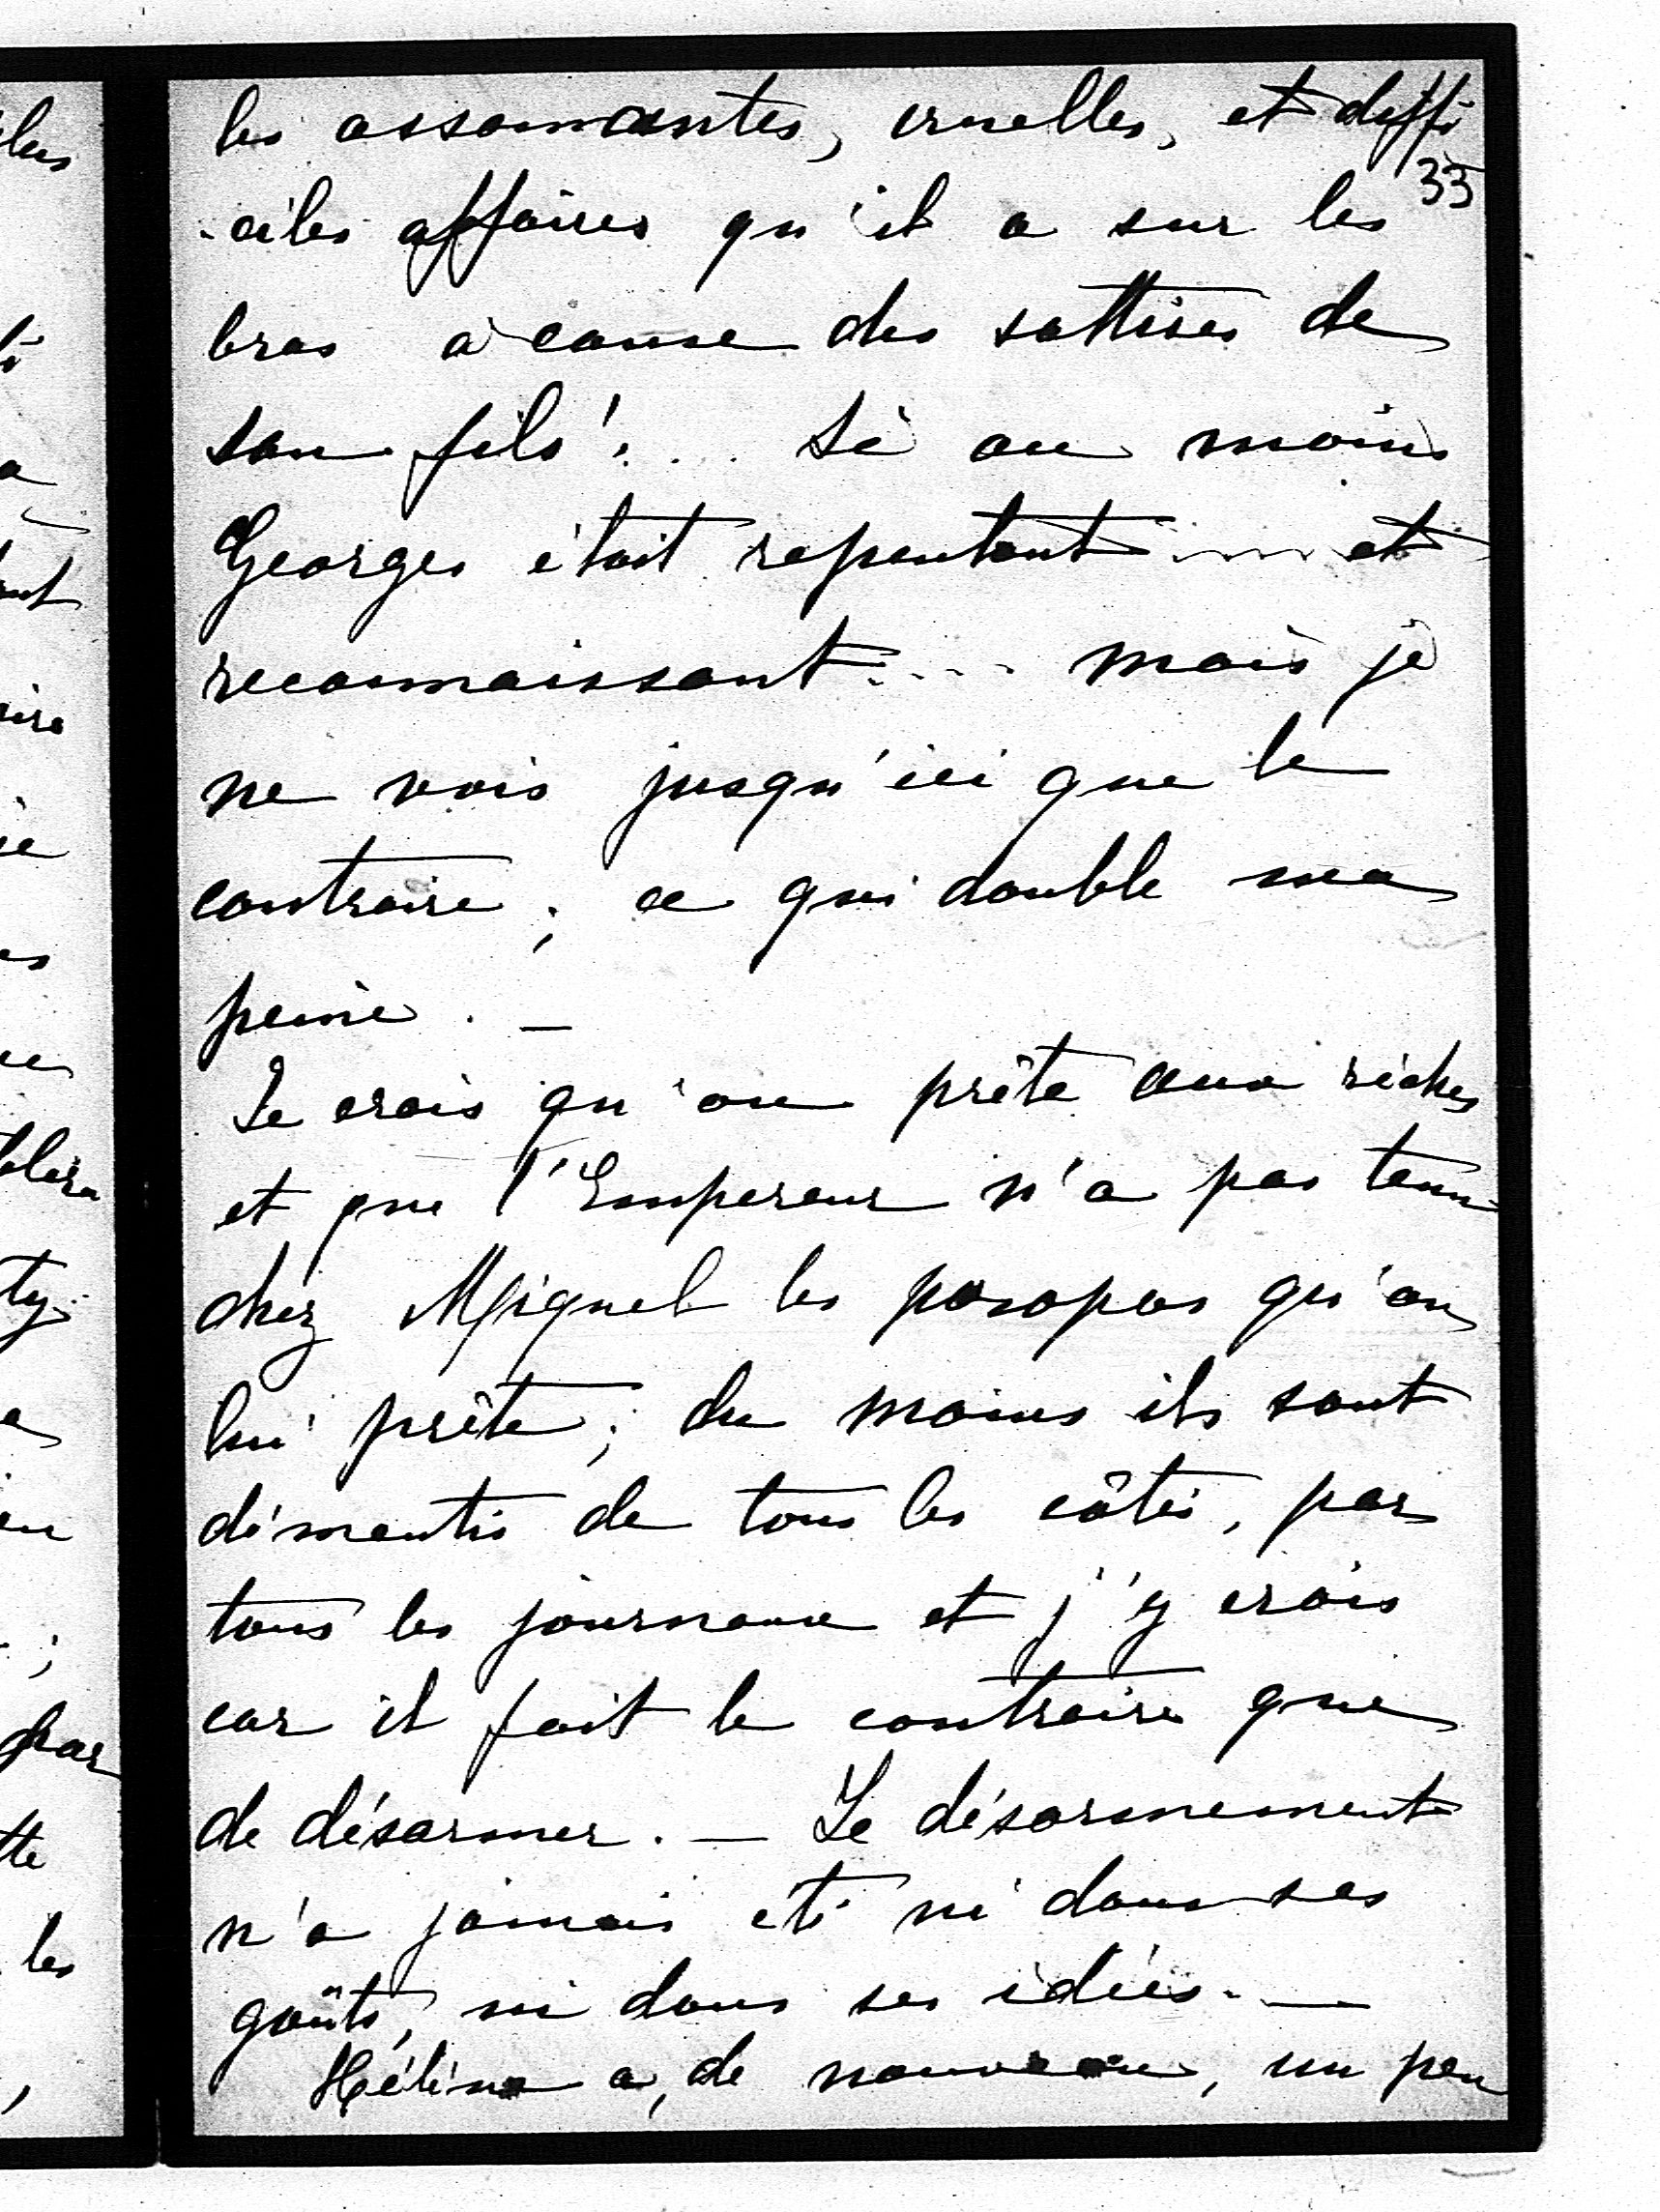 les assomantes, cruelles, et diffi
33
-ciles affaires qu'il a sur les
bras à cause des sottises de
son fils!... Si au moins
Georges était repentant .... et
reconnaissant.... mais je
ne vois jusqu'ici que le
contraire; ce qui double ma
peine. —
Je crois qu'on prête aux riches
et que l'Empereur n'a pas tenu
chez Miquel les propos qu'on
lui prête; du moins ils sont
démentis de tous les côtés, par
tous les journaux et j'y crois
car il fait le contraire que
de désarmer. — Le désarmement
n'a jamais été ni dans ses
goûts, ni dans ses idées. —
Hélène a, de nouveau, un peu